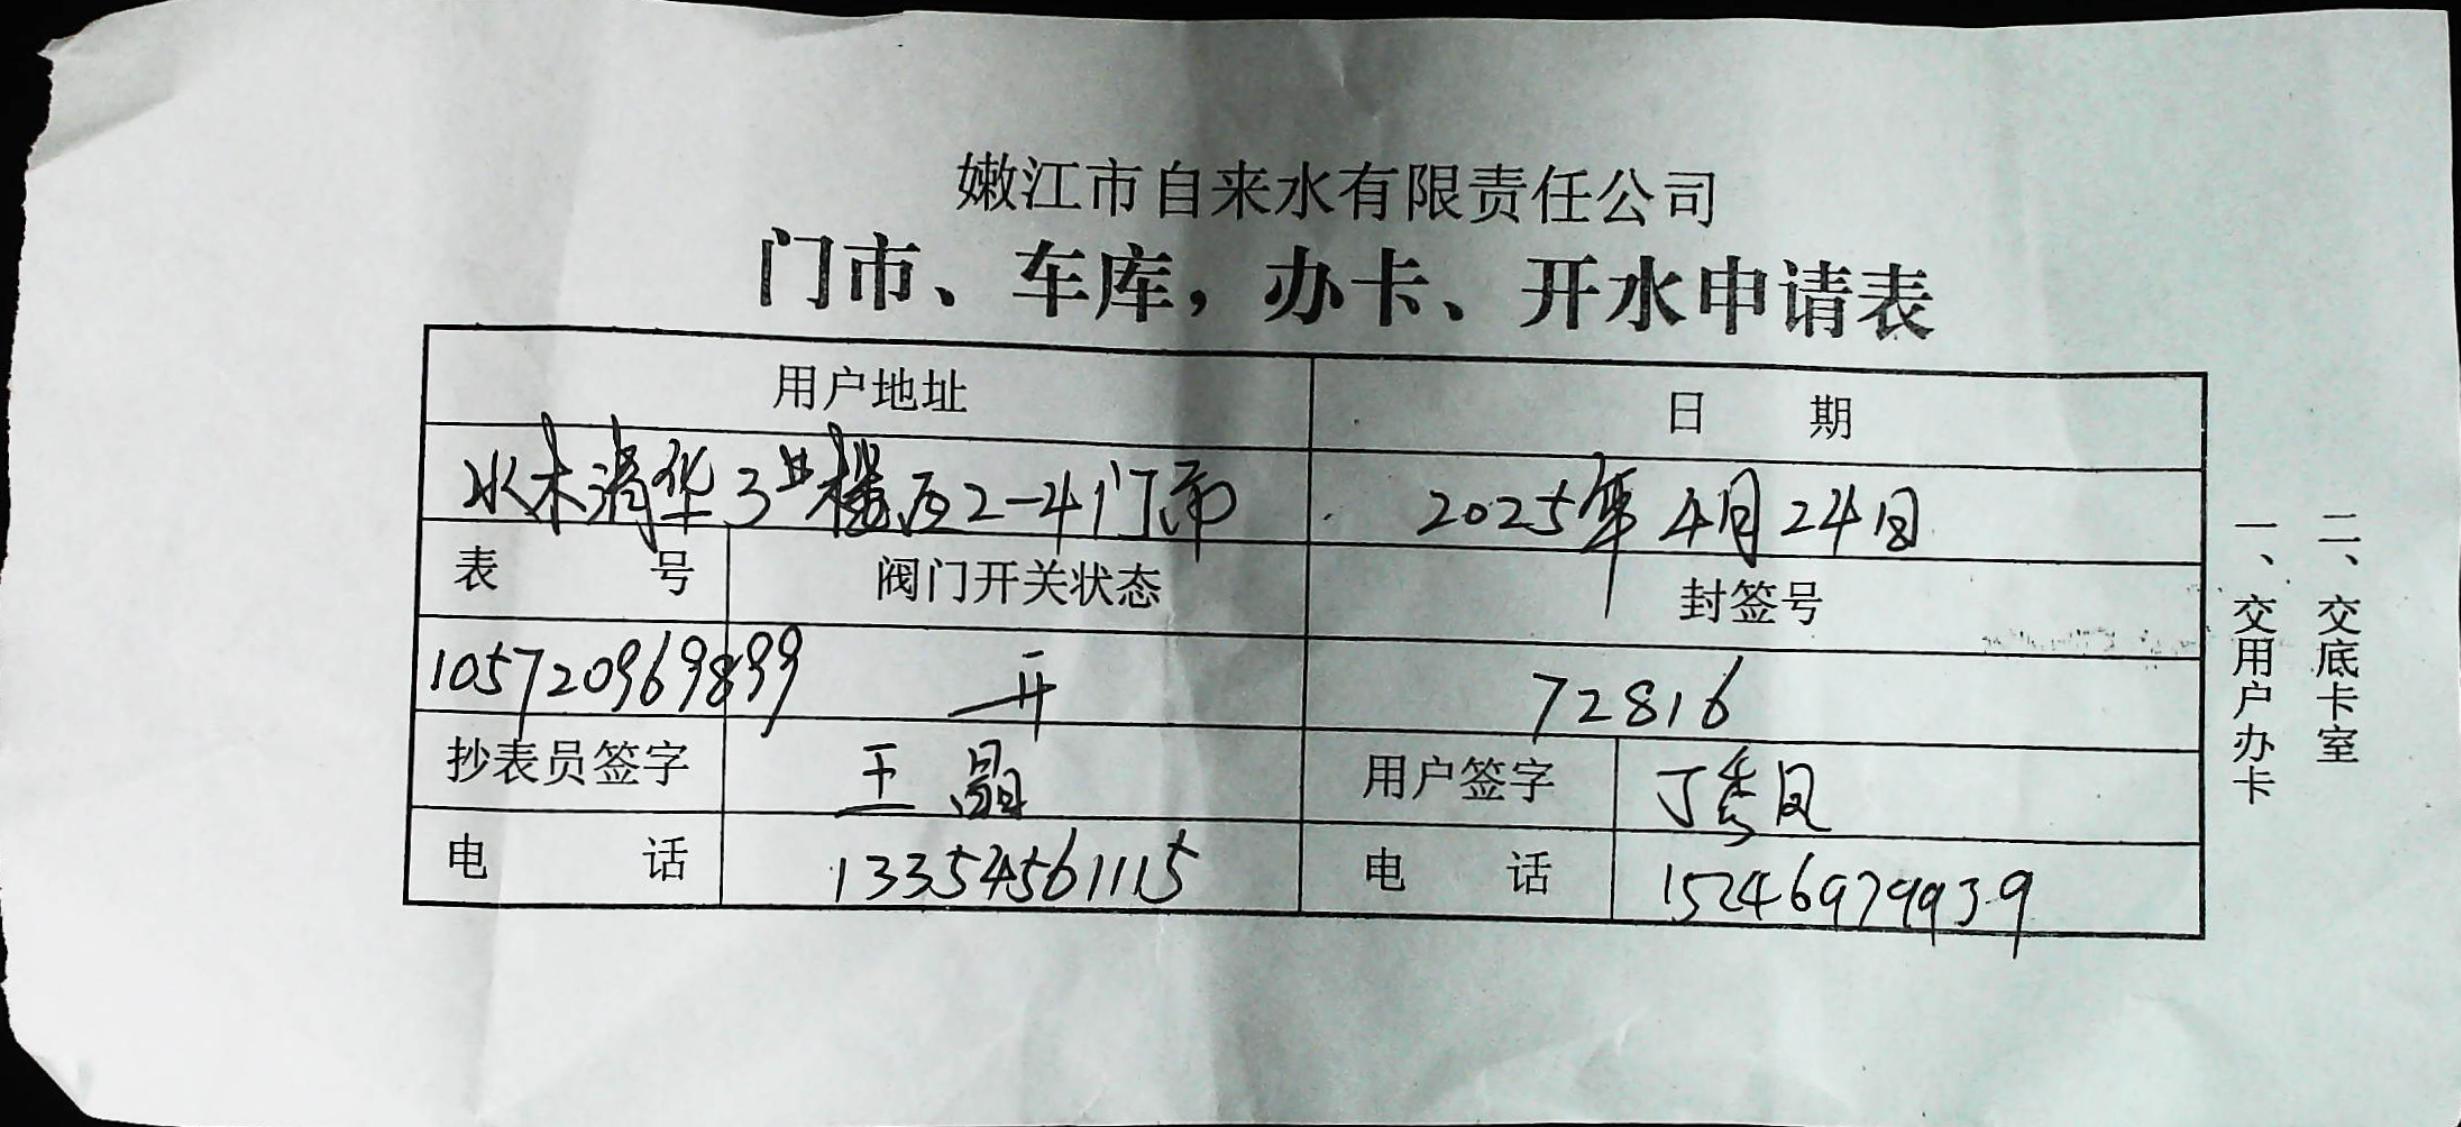 嫩江市自来水有限责任公司
门市、车库，办卡、开水申请表
用户地址 日 期
水木清华3#楼西2-4门市 2025年4月24日
表 号 阀门开关状态 封签号
105720969899 开 72816
抄表员签字 王晶 用户签字 丁秀凤
电 话 13354561115 电 话 15246979939
一、交用户办卡
二、交底卡室